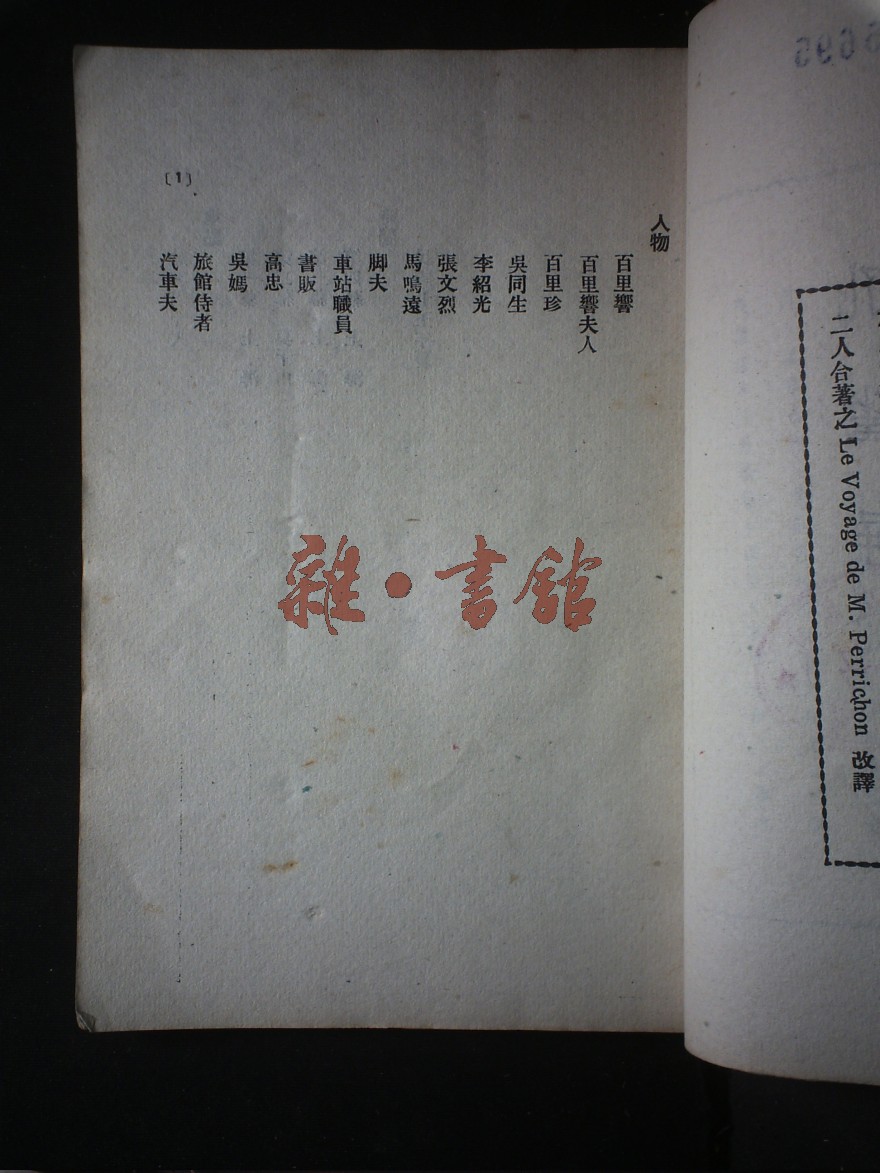 二人合著之 Le Voyage de M. Perrichon 改譯
人物
百里響
百里響夫人
百里珍
吳同生
李紹光
張文烈
馬鳴遠
脚夫
車站職員
書販
高忠
吳媽
旅館侍者
汽車夫
(1)
雜·書館